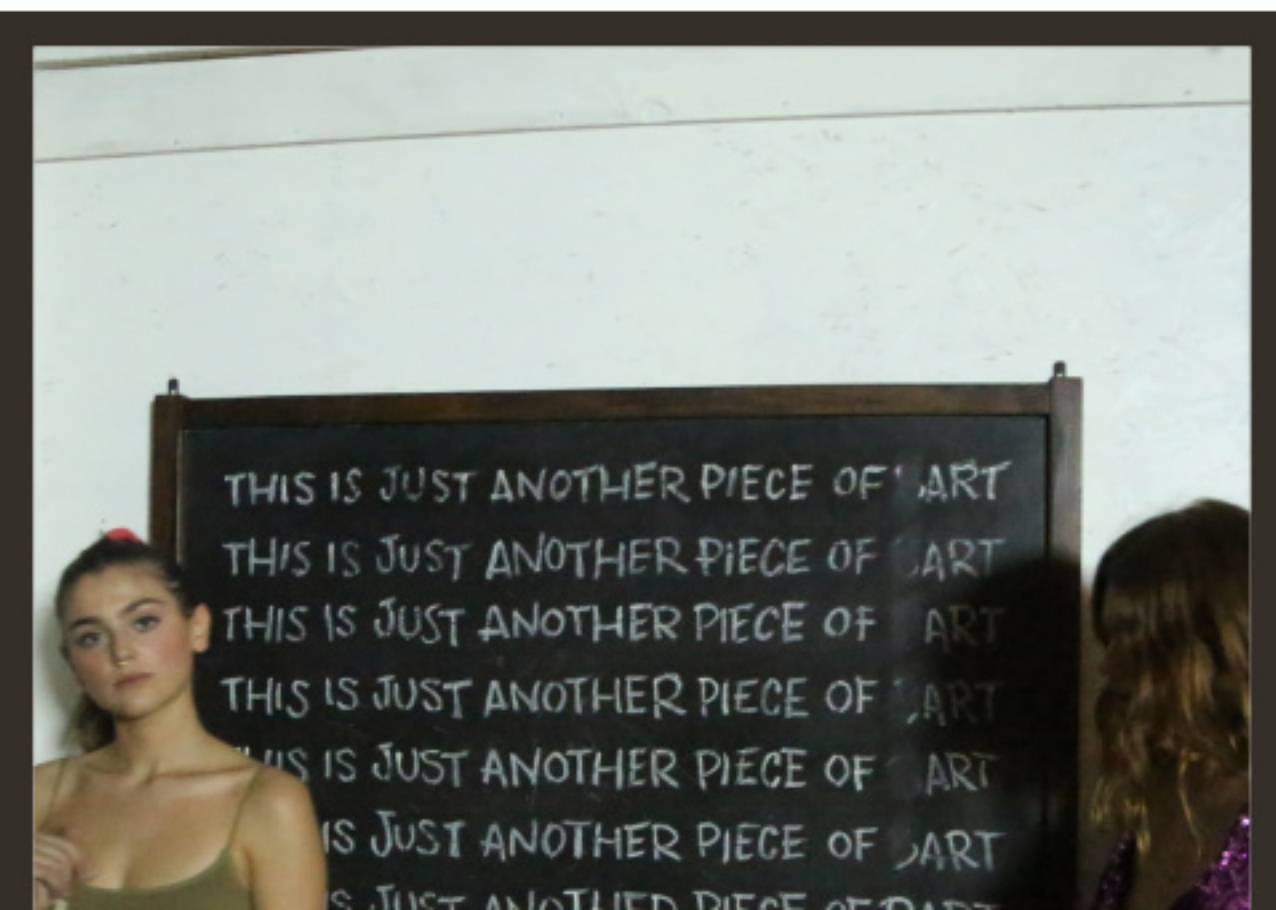 THIS IS JUST ANOTHER PIECE OF ART
THIS IS JUST ANOTHER PIECE OF ART
THIS IS JUST ANOTHER PIECE OF ART
THIS IS JUST ANOTHER PIECE OF ART
IS JUST ANOTHER PIECE OF ART
IS JUST ANOTHER PIECE OF ART
JUST ANOTHER PIECE OF